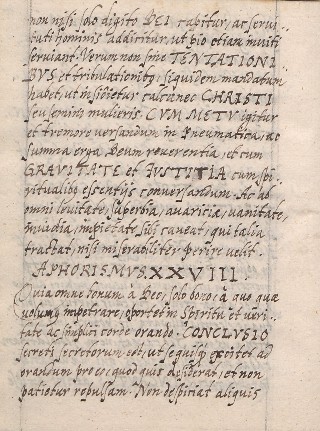 non nisi solo digito DEI capitur, ac servi
tuti hominis addicitur, ut pio etiam inviti
serviant. Verum non sine TENTATIONI
BVS et tribulationibus, siquidem mandatum
habet, ut insidietur calcaneo CHRISTI
seu seminis mulieris. CVM METV igitur
et tremore versandum in Pneumatica, ac
summa erga Deum reverentia, et cum
GRAVITATE et IVSTITIA cum spi-
ritualibus essentiis conversandum. Ac ab
omni levitate, superbia, avaricia, vanitate,
invidia, impietate sibi caveat, qui talia
tractat, nisi miserabiliter perire velit.
APHORISMVS XXVIII.
Quia omne bonum à Deo, solo bono, à quo quae
volumus impetrare, oportet in Spiritu et veri-
tate ac simplici corde orando. CONCLVSIO
secreti secretorum est, ut se quisque excitet ad
orandum pro eo, quod quis desiderat, et non
patietur repulsam. Non despiciat aliquis